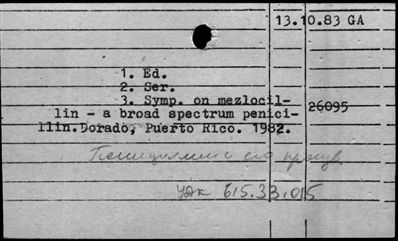 13.10.83 GA
1. Ed.
2. Ser.
3. Symp. on mezlocil-
lin - a broad spectrum penici-
llin. Dorado, Puerto Rico. 1982.
26095
Пенициллин и его
УДК 615.33.015